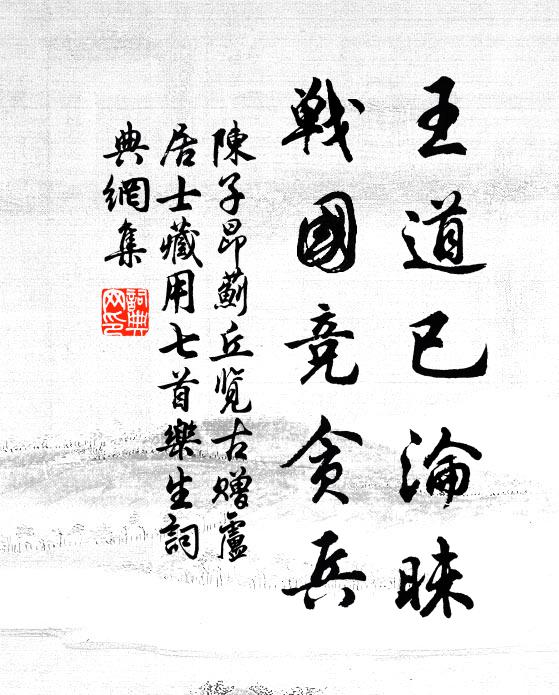 王道已淪昧
戰國竞貪兵
陳子昂薊丘览古赠盧
居士藏用七首樂生詞
典網集
詞典
网印